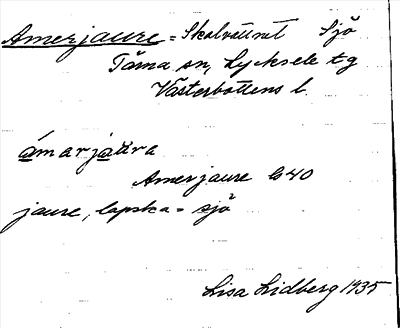 Amerjaure = Skalvattnet Sjö
Tärna sn, Lycksele tg
Västerbottens l.
ámarjaura
Amerjaure G40
jaure, lapska = sjö
Lisa Lidberg 1935